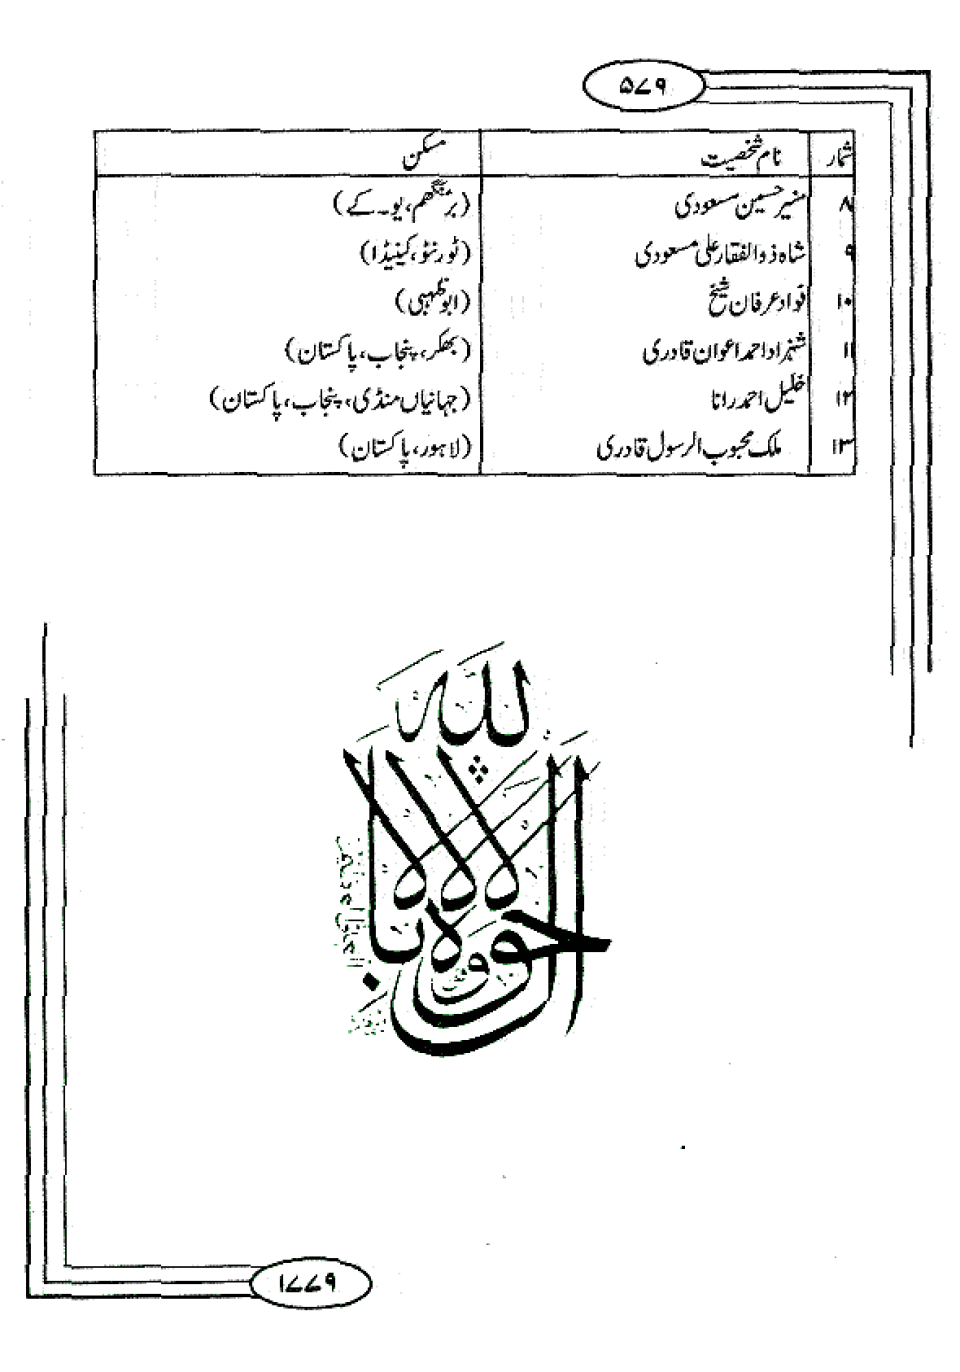 ۵۷۹
شمار نام شخصیت مسکن
۸ منیر حسین مسعودی (برمنگھم، یو۔کے)
۹ شاہ ذوالفقار علی مسعودی (ٹورنٹو، کینیڈا)
۱۰ فواد عرفان شیخ (ابوظہبی)
۱۱ شہزاد احمد اعوان قادری (بھکر، پنجاب، پاکستان)
۱۲ خلیل احمد رانا (جہانیاں منڈی، پنجاب، پاکستان)
۱۳ ملک محبوب الرسول قادری (لاہور، پاکستان)
لا حول ولا قوة الا بالله
العلی العظیم
۱۷۷۹